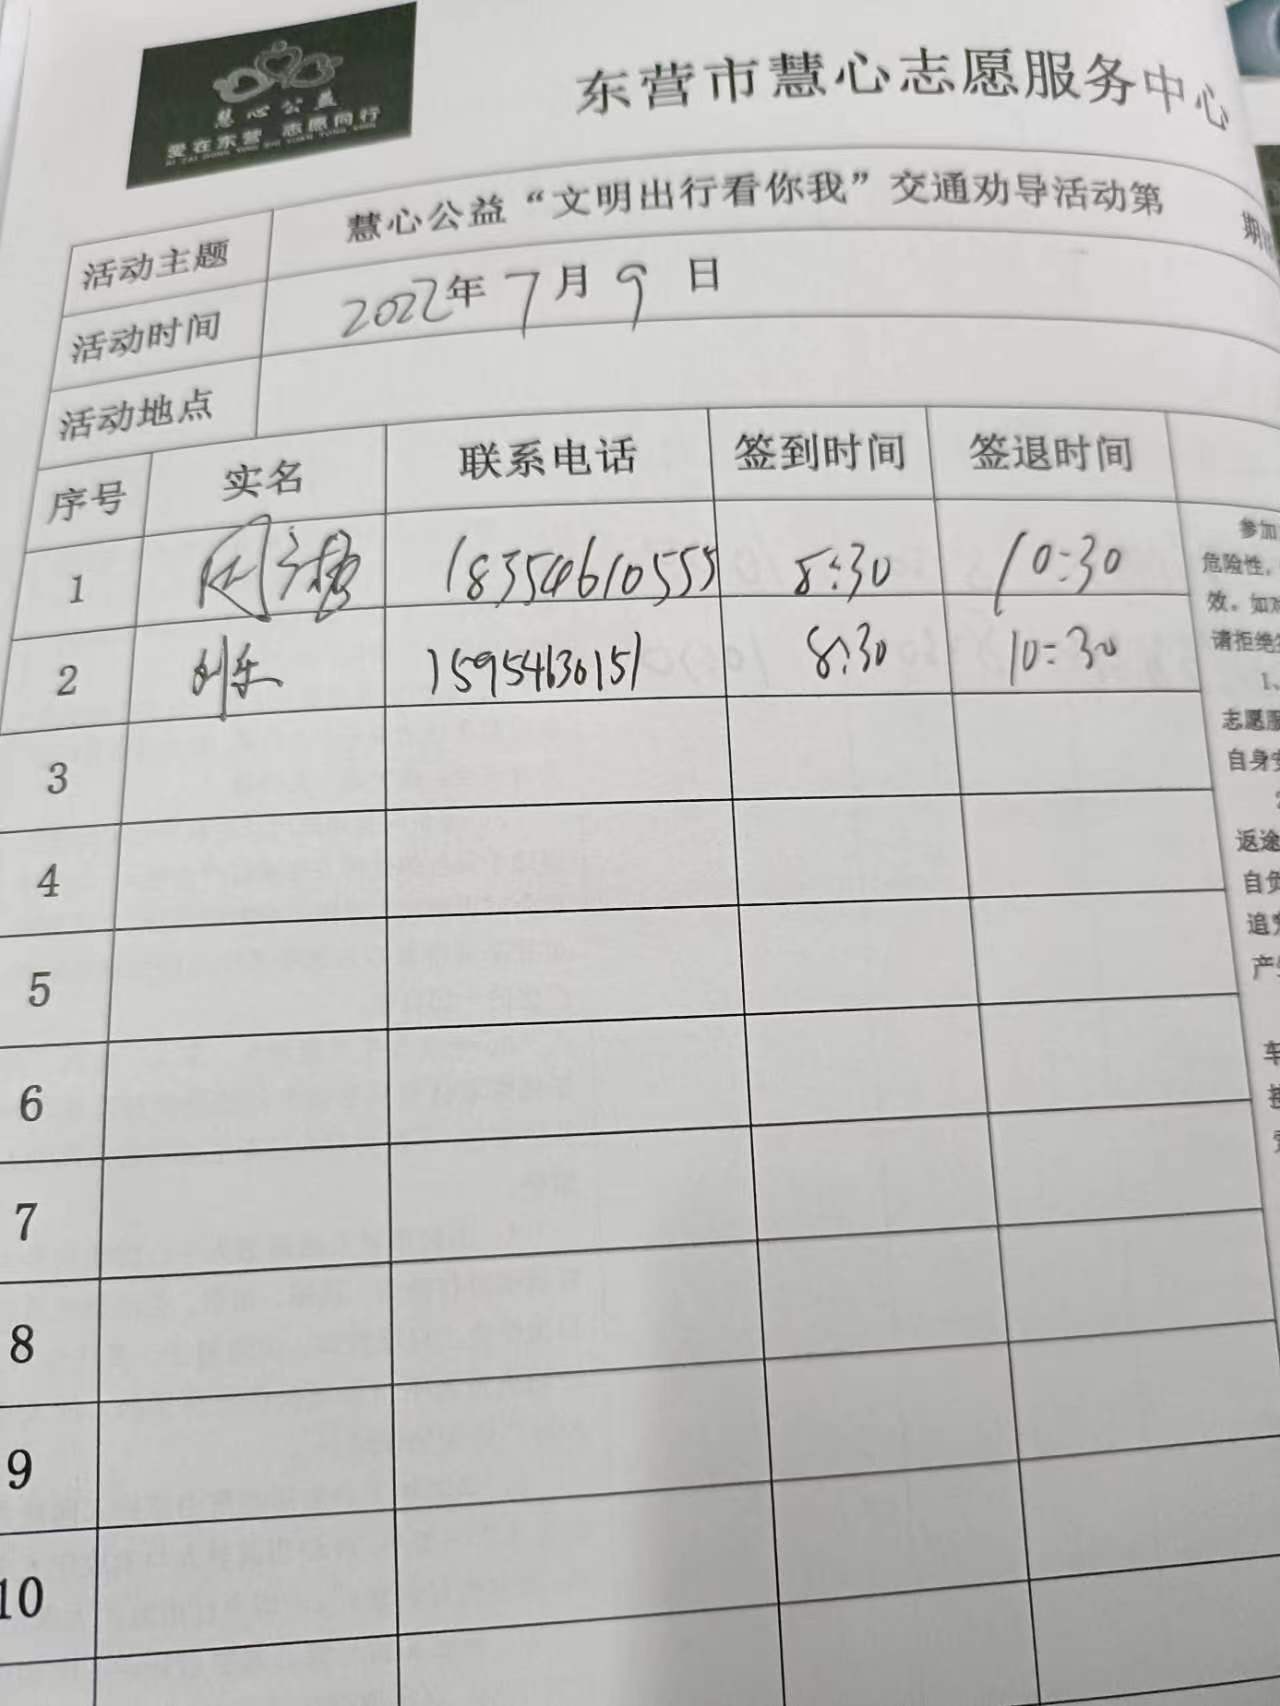 慧心公益
爱在东营 志愿同行
AI ZAI DONG YING ZHI YUAN TONG XING
东营市慧心志愿服务中心
活动主题 慧心公益“文明出行看你我”交通劝导活动第 期
活动时间 2022年7月9日
活动地点
序号 实名 联系电话 签到时间 签退时间
1 18354610555 8:30 10:30
2 刘乐 15954630151 8:30 10:30
3
4
5
6
7
8
9
10
参加
危险性,
效。如对
请拒绝
1、
志愿服
自身安
返途
自负
追究
产生
车